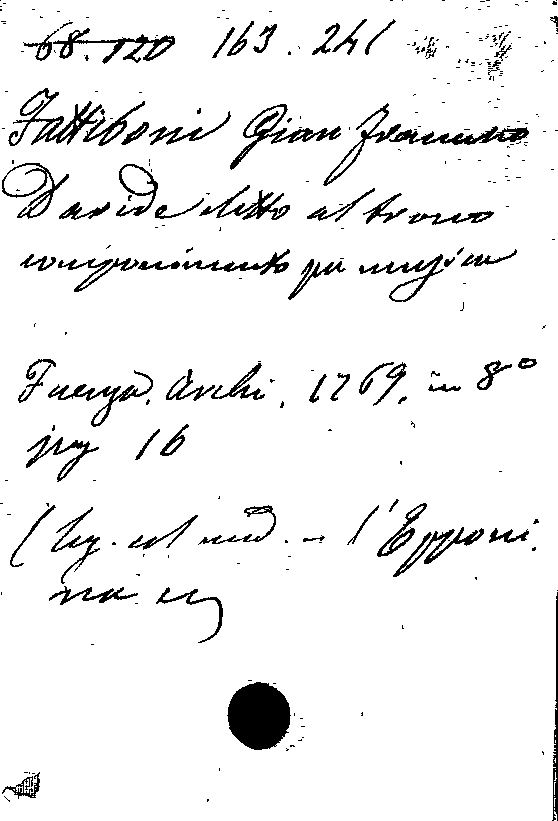 68.120 163.241
Fattiboni Gian Francesco
Davide eletto al trono
componimento per musica
Faenza, Archi, 1769, in 8º
pag 16
(leg. col med. - l'Epponi
na ec)